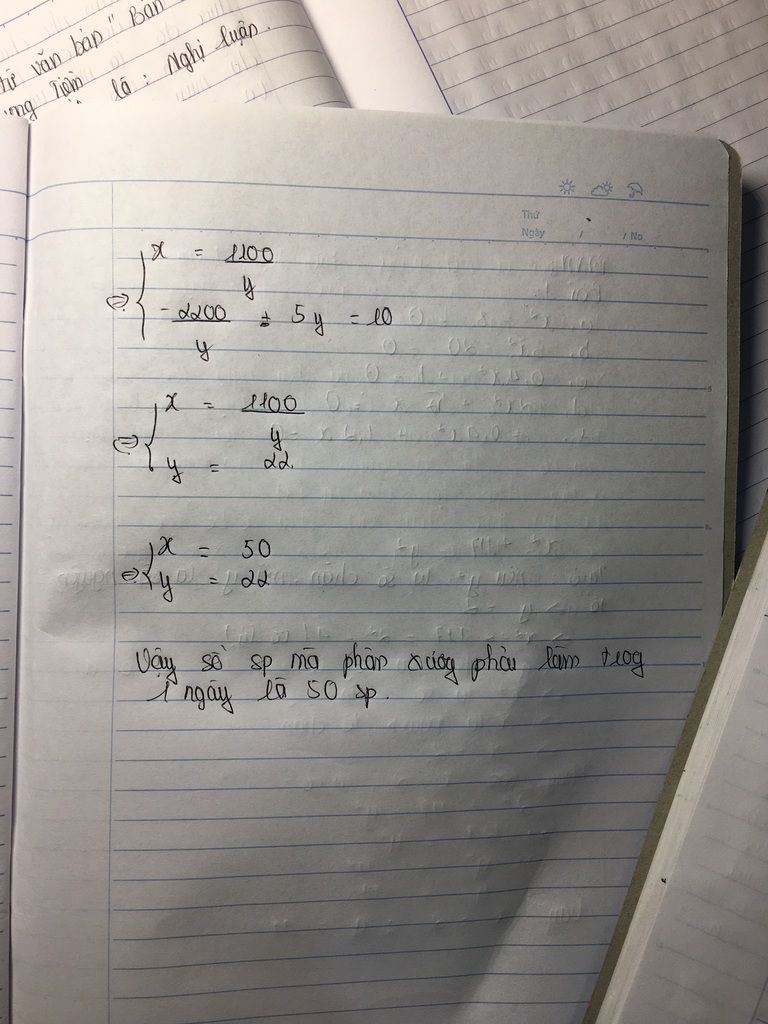 từ văn bản " Bàn
là : Nghị luận.
Thứ
Ngày / / No
⇔ { x = 1100/y
-2200/y + 5y = 10
⇔ { x = 1100/y
y = 22.
⇔ { x = 50
y = 22
Vậy số sp mà phân xưởg phải làm trog
1 ngày là 50 sp.